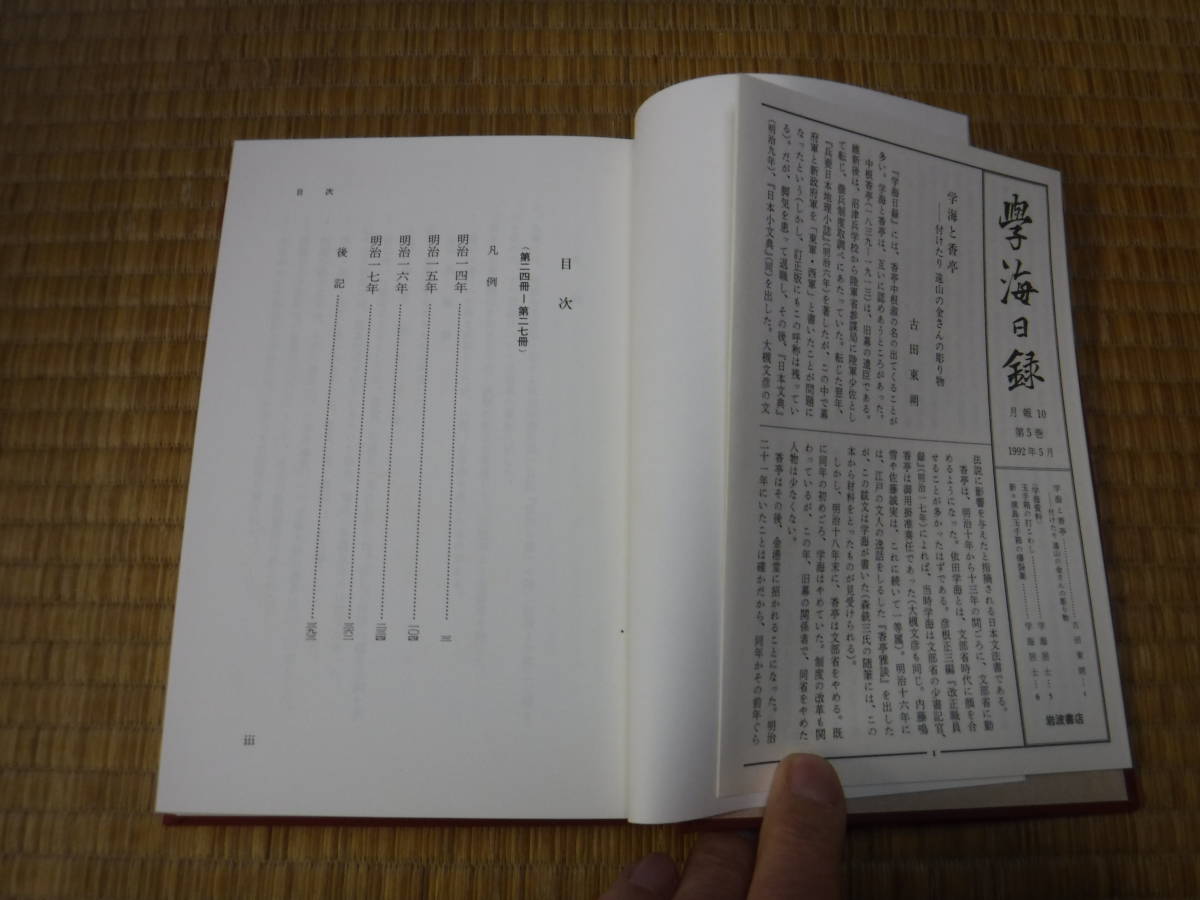 學海日録
月報10
第5巻
1992年5月
学海と香亭
――付けたり 遠山の金さんの彫り物
古田東朔…1
〈学海資料〉
玉手箱の打こわし
学海居士…5
新々浦島玉手箱の爆裂薬
学海居士…6
岩波書店
学海と香亭
――付けたり 遠山の金さんの彫り物
古田東朔
『学海日録』には、香亭中根淑の名の出てくることが
多い。学海と香亭は、互いに認めあうところがあった。
中根香亭(一八三九―一九一三)は、旧幕の遺臣である。
維新後は、沼津兵学校から陸軍省参謀局に陸軍少佐とし
て転じ、徴兵制度取調べにあたっていた。転じた翌年、
『兵要日本地理小誌』(明治六年)を著したが、この中で幕
府軍と新政府軍を「東軍・西軍」と書いたことが問題に
なったという(しかし、訂正版にもこの呼称は残ってい
る)。だが、脚気を患って退職し、その後、『日本文典』
(明治九年)、『日本小文典』(同)を出した。大槻文彦の文
法説に影響を与えたと指摘される日本文法書である。
香亭は、明治十年から十三年の間ごろに、文部省に勤
めるようになった。依田学海とは、文部省時代に顔を合
せることが多かったはずである。彦根正三編『改正職員
録』(明治一七年)によれば、当時学海は文部省の少書記官、
香亭は御用掛准奏任であった(大槻文彦も同じ。内藤鳴
雪や佐藤誠実は、これに続いて一等属)。明治十六年に
は、江戸の文人の逸話をしるした『香亭雅談』を出した
が、この跋文は学海が書いた(森銑三氏の随筆には、この
本から材料をとったものが見受けられる)。
しかし、明治十八年末に、香亭は文部省をやめる。既
に同年の初めごろ、学海はやめていた。制度の改革も関
わっているが、この年、旧幕の関係者で、同省をやめた
人物は少なくない。
香亭はその後、金港堂に招かれることになった。明治
二十一年にいたことは確かだから、同年かその前年ぐら
1
目次
(第二四冊―第二七冊)
凡例
明治一四年……三
明治一五年……一〇四
明治一六年……二三四
明治一七年
後記
目次
iii